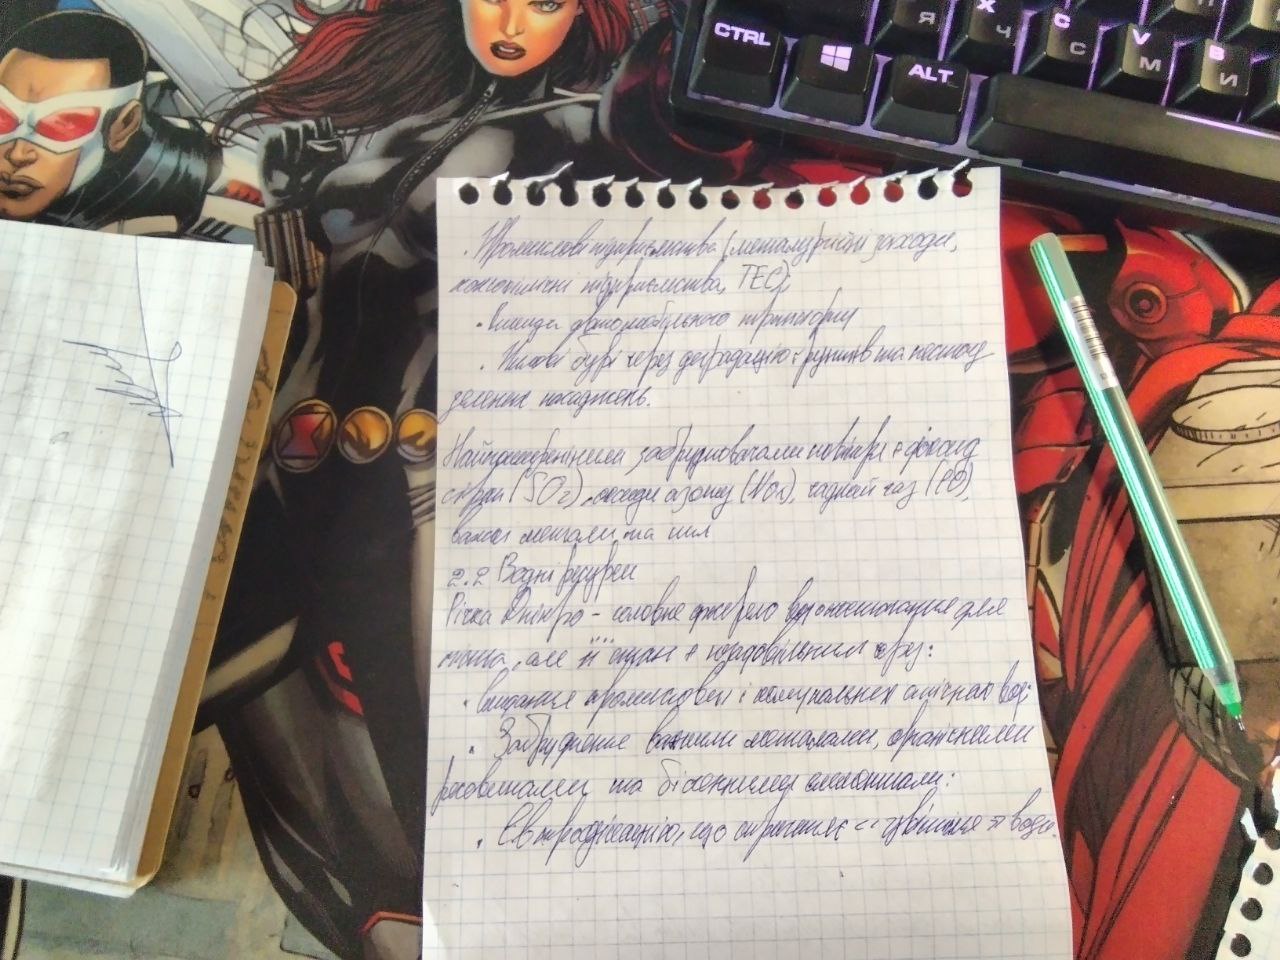 CTRL
ALT
Я
X Ч
C С
V М
B И
· Промислові підприємства (металургійні заходи,
підприємства, ТЕС);
· Викиди автомобільного транспорту
· Пилові бурі через деградацію ґрунтів та нестачу
зелених насаджень.
Найпоширенішими забруднювачами повітря є діоксид
сірки (SO₂), оксиди азоту (NOx), чадний газ (CO),
важкі метали та пил
2.2 Водні ресурси
Річка Дніпро – головне джерело водопостачання для
міста, але її стан є незадовільним через:
· Скидання промислових і комунальних стічних вод:
· Забруднення важкими металами, органічними
речовинами та біогенними елементами:
· Евтрофікацію, що спричиняє << цвітіння >> води.